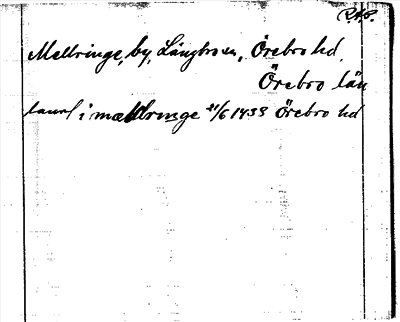 R.A.P.
Mellringe, by, Längbro sn, Örebro hd,
Örebro län
i mællringe 21/6 1438 Örebro hd